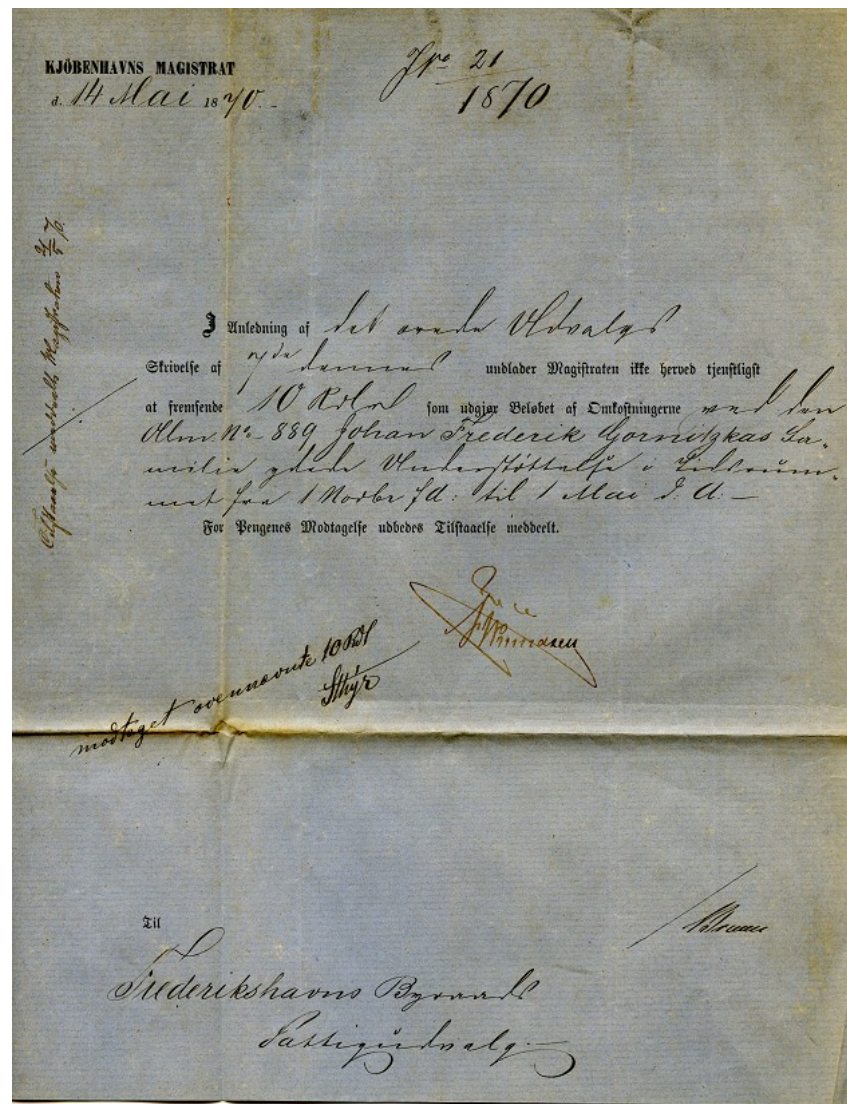 KJÖBENHAVNS MAGISTRAT
d. 14 Mai 1870.
Jr 21
1870
Tilstaaelse meddeelt Magistraten
I Anledning af det ærede Udvalgs
Skrivelse af dennes undlader Magistraten ikke herved tjenstligst
at fremsende 10 Rdl som udgjør Beløbet af Omkostningerne ved den
Alm. No 889 Johan Frederik Gornitzkas Fa-
milie ydede Understøttelse i Tidsrum-
met fra 1 Novbr f.A: til 1 Mai d. A: —
For Pengenes Modtagelse udbedes Tilstaaelse meddeelt.
modtaget ovennævnte 10 Rdl
Til
Frederikshavns Byraads
Fattigudvalg.